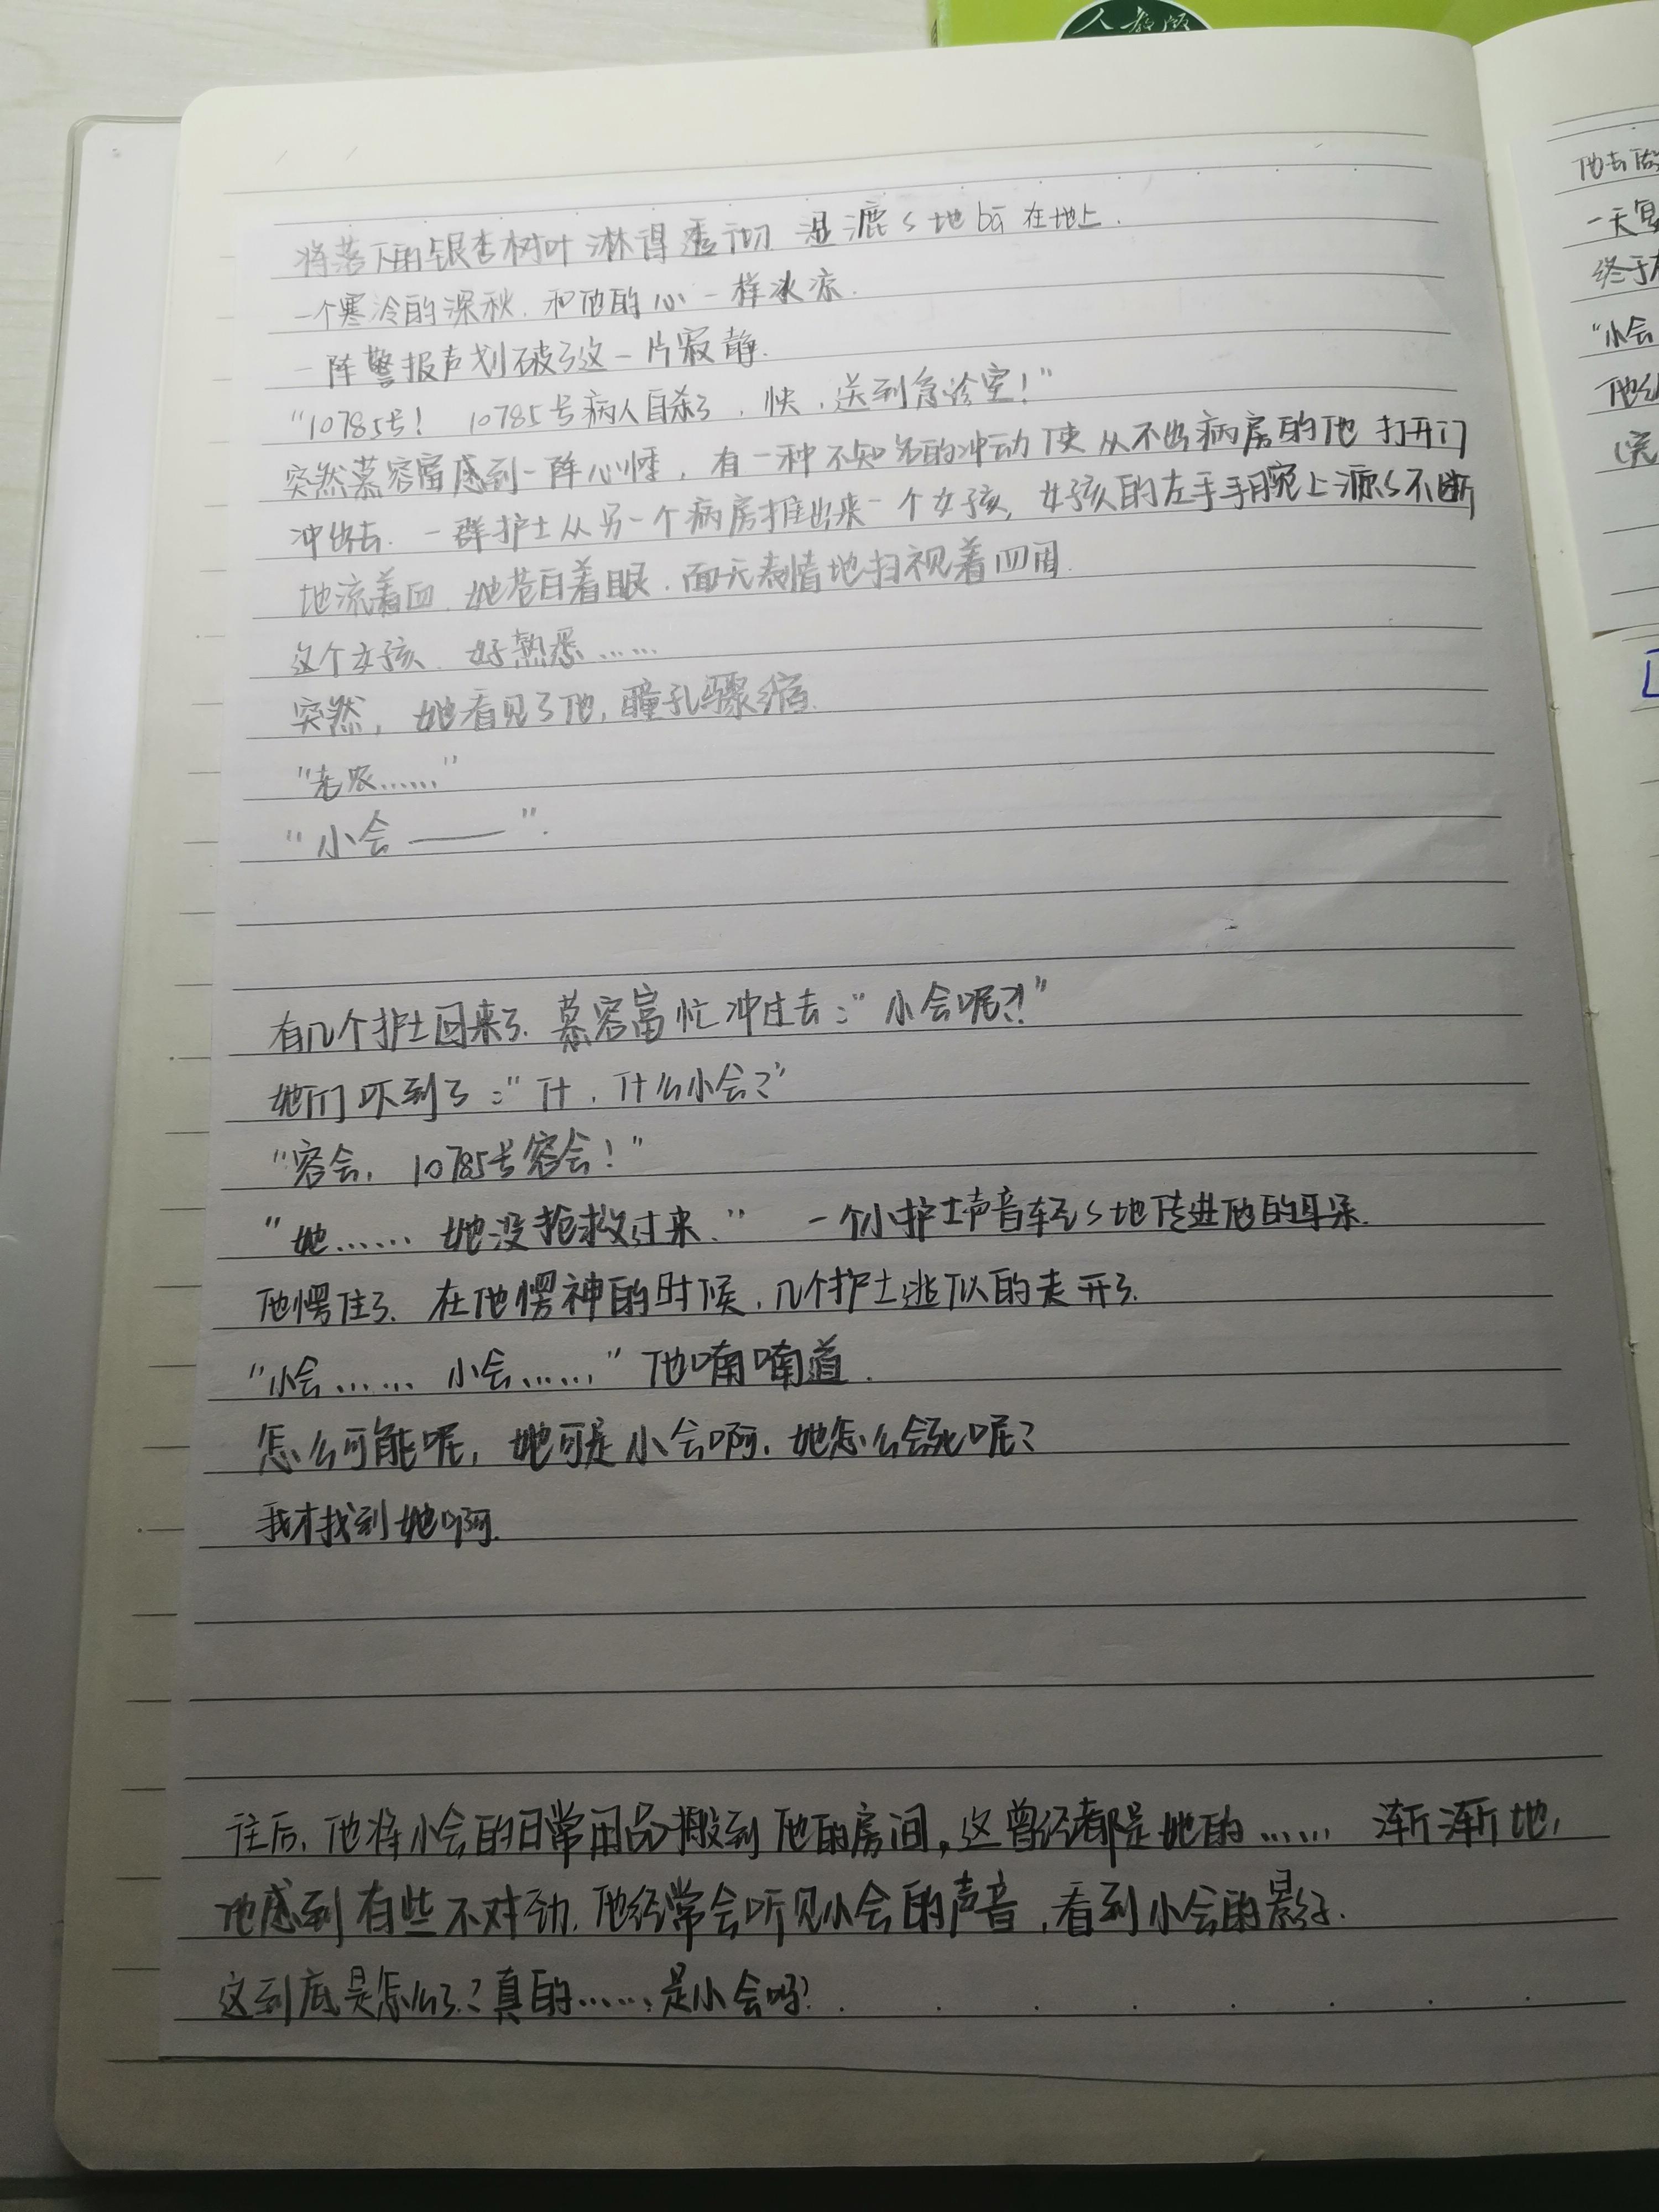 人教版
将落下的银杏树叶淋得透彻 湿漉々地bā在地上.
一个寒冷的深秋. 和他的心一样冰凉.
一阵警报声划破了这一片寂静.
"10785号! 10785号病人自杀了, 快, 送到急诊室!"
突然慕容富感到一阵心悸, 有一种不知名的冲动使从不出病房的他 打开门
冲出去. 一群护士从另一个病房推出来一个女孩, 女孩的左手手腕上源々不断
地流着血. 她苍白着眼. 面无表情地扫视着四周.
这个女孩. 好熟悉......
突然, 她看见了他, 瞳孔骤缩.
"老农......"
"小会——".
有几个护士回来了. 慕容富忙冲过去:"小会呢?!"
她们吓到了:"什, 什么小会?"
"容会, 10785号容会!"
"她...... 她没抢救过来." 一个小护士声音轻々地传进他的耳朵.
他愣住了. 在他愣神的时候, 几个护士逃似的走开了.
"小会...... 小会......" 他喃喃道.
怎么可能呢, 她可是小会啊. 她怎么会死呢?
我才找到她啊.
往后, 他将小会的日常用品搬到他的房间, 这曾经都是她的...... 渐渐地,
他感到有些不对劲. 他经常会听见小会的声音, 看到小会的影子.
这到底是怎么了? 真的......是小会吗?
他去
一天
终于
"小会
他
(完